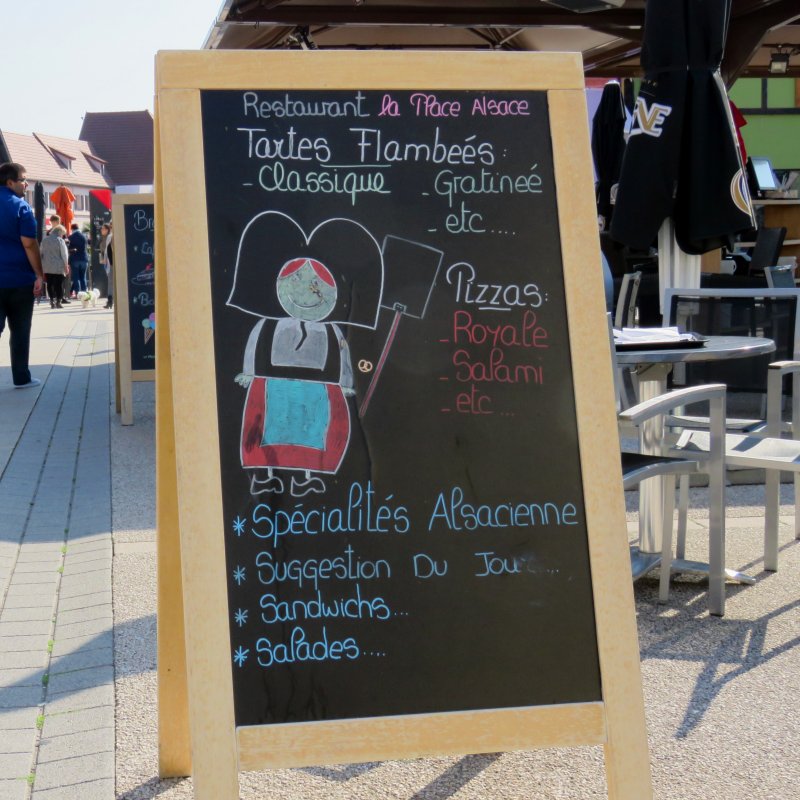 Restaurant la Place Alsace
Tartes Flambeés:
- Classique
- Gratineé
- etc....
Pizzas:
- Royale
- Salami
- etc...
* Spécialités Alsacienne
* Suggestion Du Jour....
* Sandwichs...
* Salades....